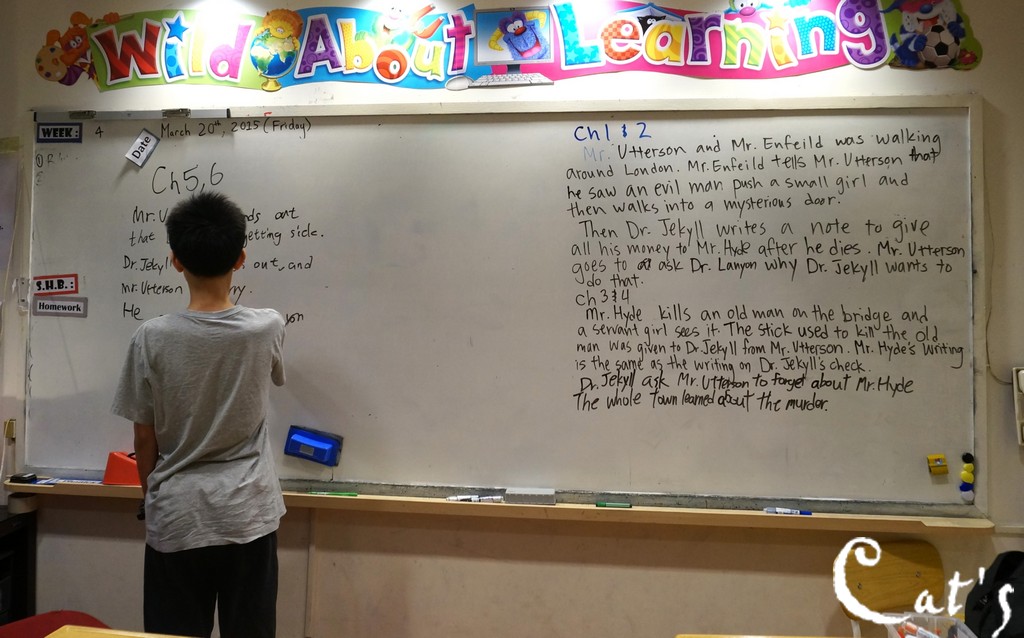 Wild About Learning
WEEK: 4
March 20th, 2015 (Friday)
Date
①
S.H.B.:
Homework
Ch 5,6
Mr. out
that getting sick.
Dr. Jekyll out, and
Mr. Utterson
He
Ch 1 & 2
Mr. Utterson and Mr. Enfeild was walking
around London. Mr. Enfeild tells Mr. Utterson that
he saw an evil man push a small girl and
then walks into a mysterious door.
Then Dr. Jekyll writes a note to give
all his money to Mr. Hyde after he dies. Mr. Utterson
goes to ask Dr. Lanyon why Dr. Jekyll wants to
do that.
Ch 3 & 4
Mr. Hyde kills an old man on the bridge and
a servant girl sees it. The stick used to kill the old
man was given to Dr. Jekyll from Mr. Utterson. Mr. Hyde's writing
is the same as the writing on Dr. Jekyll's check.
Dr. Jekyll ask Mr. Utterson to forget about Mr. Hyde
The whole Town learned about the murder.
Cat's